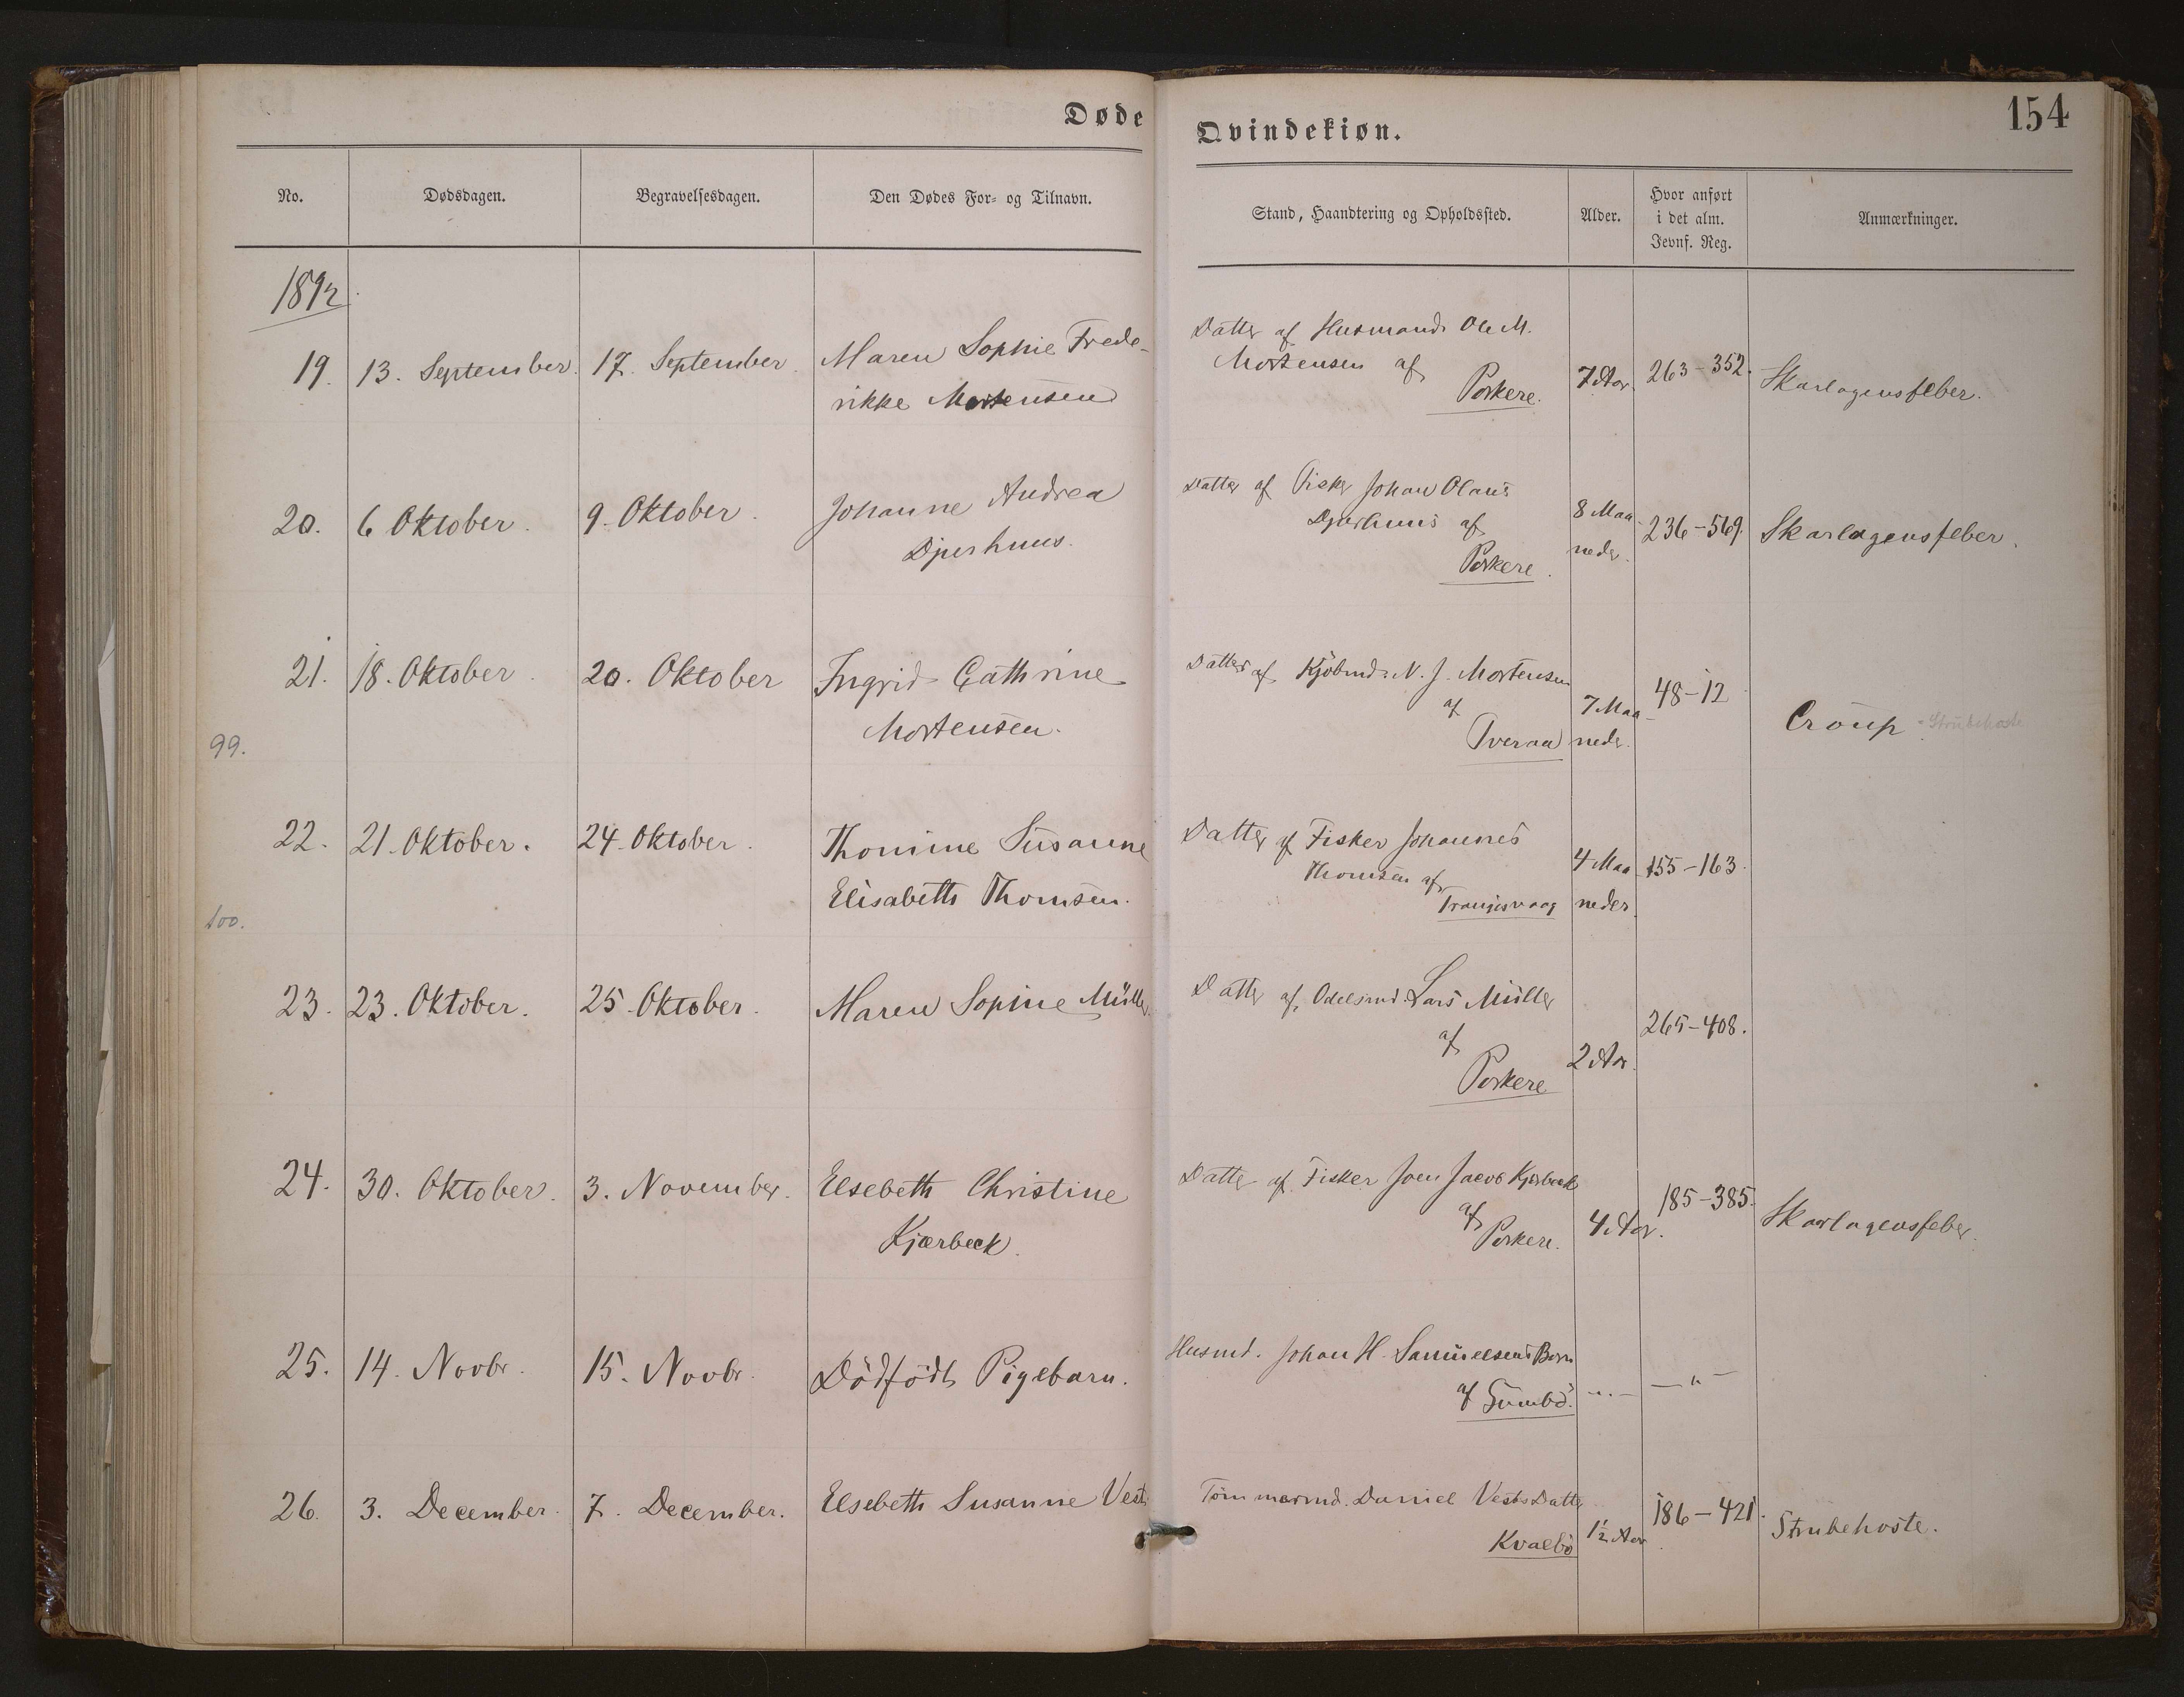 Døde
Qvindekiøn.
154
No.
Dødsdagen.
Begravelsesdagen.
Den Dødes For- og Tilnavn.
Stand, Haandtering og Opholdssted.
Alder.
Hvor anført
i det alm.
Jevnf. Reg.
Anmærkninger.
1892
19. 13. September. 17. September. Maren Sophie Frede-
rikke Mortensen
Datter af Husmand Ole M.
Mortensen af
Porkere.
7 Aar.
263-352.
Skarlagensfeber.
20. 6 Oktober. 9. Oktober. Johanne Andrea
Djurhuus.
Datter af Fisker Johan Olaus
Djurhuus af
Porkere.
8 Maa-
neder.
236-569.
Skarlagensfeber.
21. 18. Oktober. 20. Oktober Ingrid Cathrine
Mortensen.
Datter af Kjöbmd. N. J. Mortensen
af
Tveraa
7 Maa-
neder.
48-12
Croup - Strubehoste
99.
22. 21. Oktober. 24. Oktober. Thomine Susanne
Elisabeth Thomsen.
Datter af Fisker Johannes
Thomsen af
Trangisvaag
4 Maa-
neder.
155-163.
100.
23. 23. Oktober. 25. Oktober. Maren Sopine Müller.
Datter af Odelsmd. Lars Müller
af
Porkere
2 Aar.
265-408.
24. 30. Oktober. 3. November. Elsebeth Christine
Kjærbeck.
Datter af Fisker Joen Jacob Kjærbeck
af
Porkere.
4 Aar.
185-385.
Skarlagensfeber.
25. 14. Novbr. 15. Novbr. Dödfödt Pigebarn.
Husmd. Johan H. Samuelsens Barn
af Sumbö.
- " -
- " -
26. 3. December. 7. December. Elsebeth Susanne Vest.
Tömmermd. Daniel Vests Datter
Kvalbö
1½ Aar
186-421.
Strubehoste.